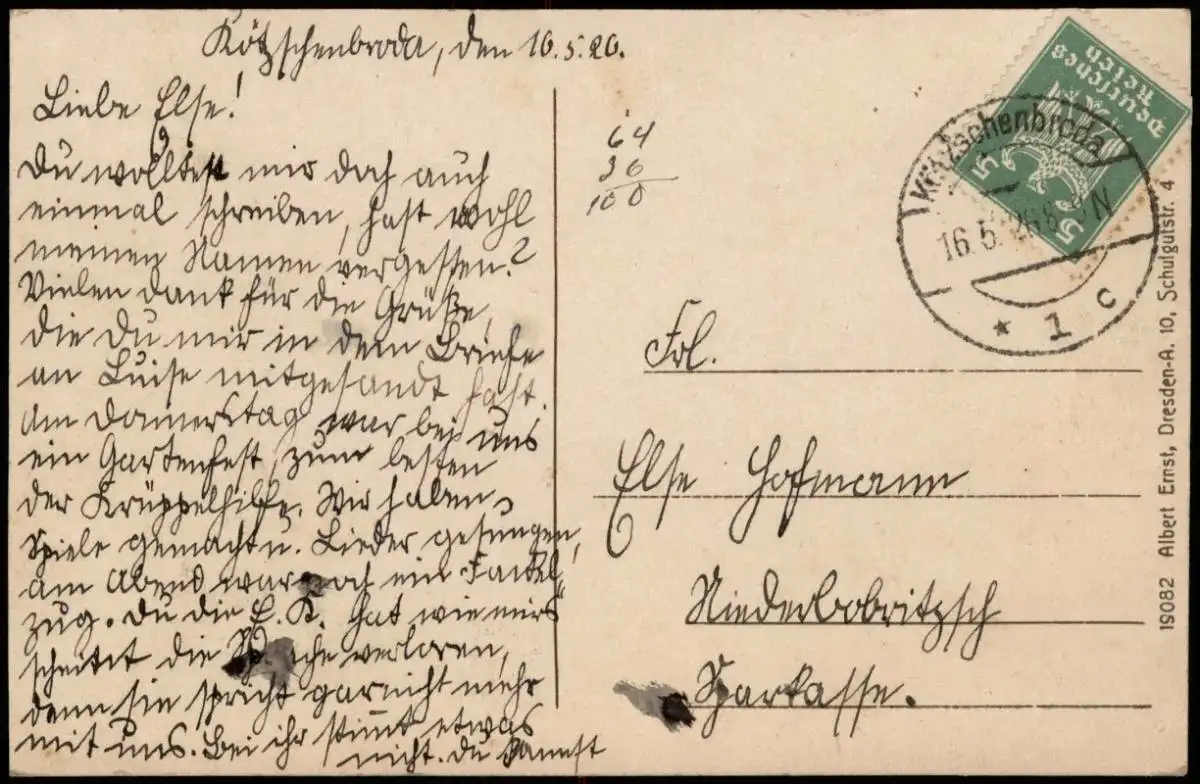 Kötzschenbroda, den 16.5.26.
Liebe Else!
Du wolltest mir doch auch
einmal schreiben, hast wohl
meinen Namen vergessen?
Vielen Dank für die Grüße,
die Du mir in dem Briefe
an Luise mitgesandt hast.
Am Donnerstag war bei uns
ein Gartenfest, zum besten
der Krüppelhilfe. Wir haben
Spiele gemacht u. Lieder gesungen,
am Abend war noch ein Fackel-
zug. Du die E. K. hat wie mirs
scheint die Sprache verloren,
denn sie spricht garnicht mehr
mit uns. Bei ihr stimmt etwas
nicht. Du kannst
64
36
100
Deutsches
Reich
5
5
Kötzschenbroda
16.5.26.6-N
* 1 c
Frl.
Else Hofmann
Niederbobritzsch
Sparkasse.
19082 Albert Ernst, Dresden-A. 10, Schulgutstr. 4